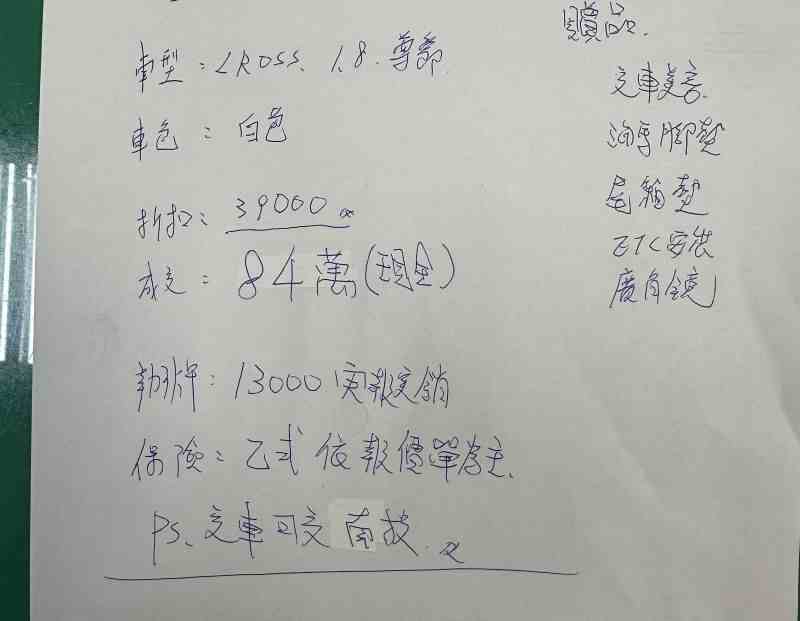 車型：CROSS. 1.8. 尊爵
車色：白色
折扣：39000
成交：84萬(現金)
領牌：13000 實報實銷
保險：乙式 依報價單為主.
PS. 交車可交 南投.
贈品.
交車美容
海馬腳墊
尾箱墊
ETC安裝
廣角鏡